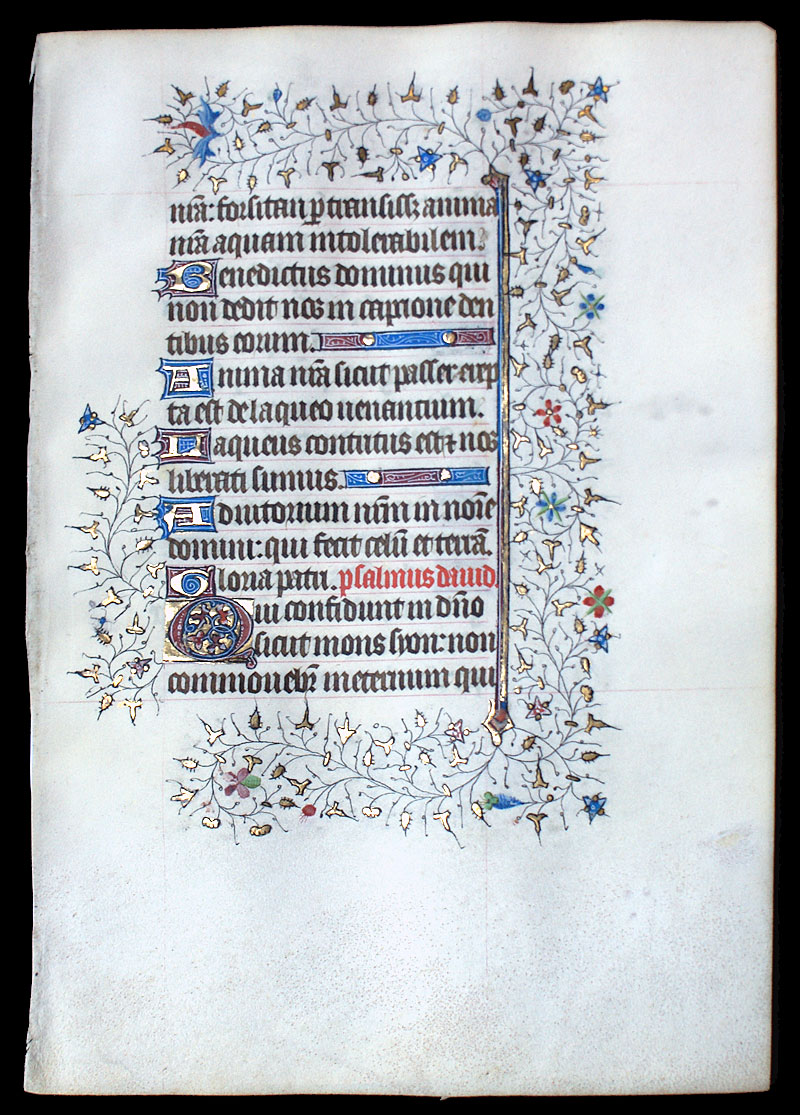 nr̃a: forsitan ꝑtransissꝫ anima
nr̃a aquam intolerabilem.
Benedictus dominus qui
non dedit nos in captione den
tibus eorum.
Anima nr̃a sicut passer erep
ta est de laqueo uenantium.
Laqueus contritus est ⁊ nos
liberati sumus.
Adiutorium nr̃m in noīe
domini: qui fecit celū et terrā.
Gloria patri. psalmus dauid.
Qui confidunt in dño
sicut mons syon: non
commouebr̃ ineternum qui